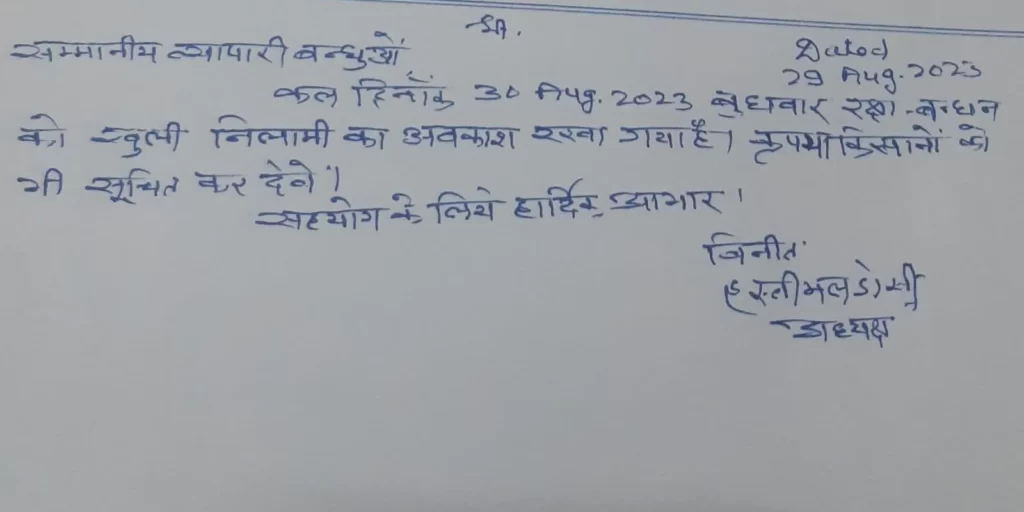 श्री.
Dated
सम्मानीय व्यापारी बन्धुओं
29 Aug. 2023
कल दिनाँक 30 Aug. 2023 बुधवार रक्षा-बन्धन
को खुली निलामी का अवकाश रखा गया है। कृपया किसानों को
भी सूचित कर देवे।
सहयोग के लिये हार्दिक आभार।
विनीत
हस्तीमल डोसी
अध्यक्ष